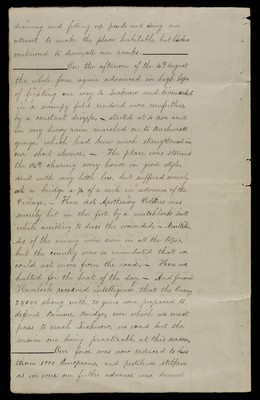 draining and filling up ponds and doing our
utmost to make the place habitable but Cholera
continued to decimate our ranks.
On the afternoon of the 4th August
the whole force again advanced in high hopes
of fighting our way to Lucknow and bivouacked
in a swampy field rendered more comfortless
by a constant drizzle, - started at 4 am and
in very heavy rain marched on to Busherut
gunge which had been much strengthened in
our short absence. - The place was stormed
the 84th clearing every house in good style
and with very little loss, but suffered severely
at a bridge a ¼ of a mile in advance of the
Village. - Here Asst Apothecary was
severely hit in the foot by a matchlock ball
while assisting to dress the wounded. -
ds of the enemy were seen in all the topes
but the country was so inundated that we
could not move from the road. - Here we
halted for the heat of the day. - And General
Havelock received intelligence that the Enemy
strong with 50 guns were prepared to
defend Bunnee Bridge, over which we must
pass to reach Lucknow, no road but the
main one being practicable at this season,
Our force was now reduced to less
than 1000 Europeans, and perilous
as we were our further advance was deemed